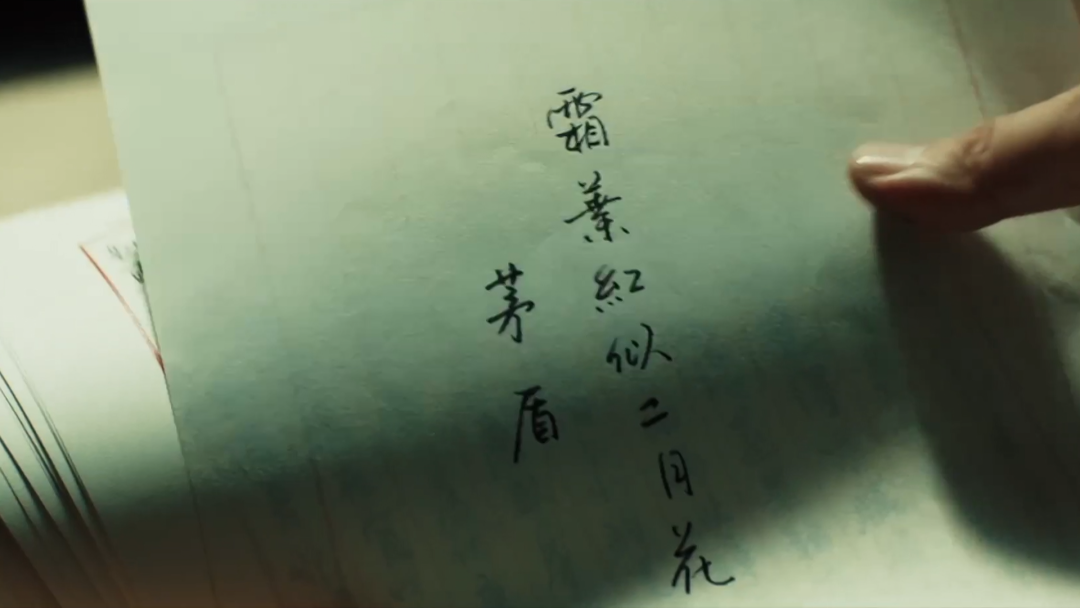 霜葉紅似二月花
茅盾